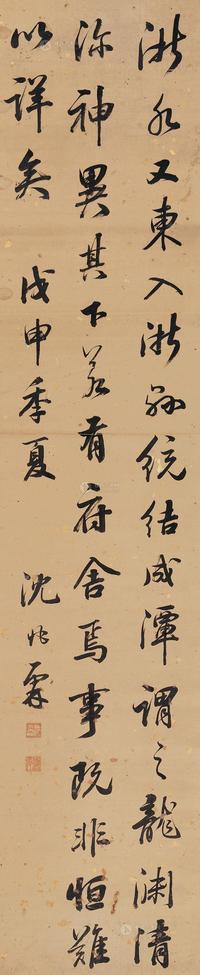 淅水又東入淅縣統結成潭謂之龍渊清
深神異其下若有府舍焉事既非恒難
以詳矣 戊申季夏 沈兆霖